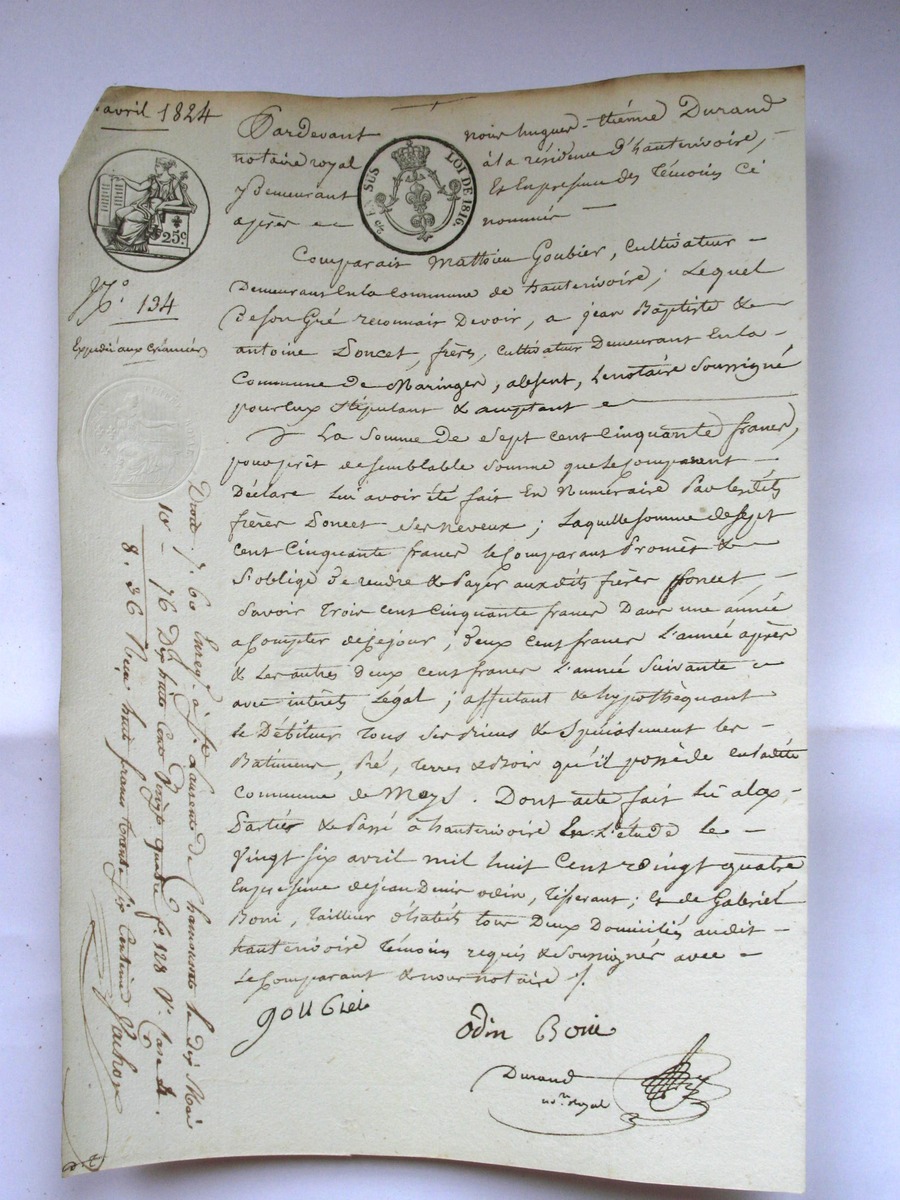 avril 1824
25c
EN SUS
LOI DE 1816.
No. 134
Expédié aux Créanciers
Pardevant nous hugues-étienne Durand
notaire royal à la résidence d'hauterivoire,
y Demeurant Et En presence des Témoins Cé
après nommés
Comparait Mathieu Goubier, Cultivateur
Demeurant En la Commune de hauterivoire; Lequel
De son Gré reconnait Devoir, a jean Baptiste &
antoine Poncet, frères, Cultivateur Demeurant En la
Commune de Maringes, absent, Le notaire Soussigné
pour Eux stipulant & acceptant
La Somme de Sept cent Cinquante francs,
pour prêt de semblable Somme que le Comparant
Déclare lui avoir été fait En Numéraire Par lesdits
frères Poncet ses neveux; Laquelle somme de Sept
cent Cinquante francs le Comparant Promet &
s'oblige De rendre & Payer auxdits frères Poncet,
Savoir Trois cent Cinquante francs Dans une année
a Compter de Ce jour, deux cent francs L'année après
& les autres deux cent francs L'année Suivante
avec intérêts Légal; affectant & hypothèquant
le Débiteur Tous ses biens & Spécialement les
Batimens, Pré, Terres & Bois qu'il possède en ladite
Commune de Meys. Dont acte fait lu aux
Parties & Passé à hauterivoire En L'étude le
Vingt six avril mil huit Cent vingt quatre
En presence de jean Denis odin, Tisserant; Et de Gabriel
Boni, Tailleur d'habits tous Deux Domiciliés audit
hauterivoire Témoins requis & Soussignés avec
le Comparant & nous notaire
goubiei
Odin Boni
Durand
nore royal
Enregé à St Laurent de Chamousset le dix Mai
Dix huit Cent Vingt quatre fo 128 Vo Case
8. 36 Reçu huit francs trente Six Centimes